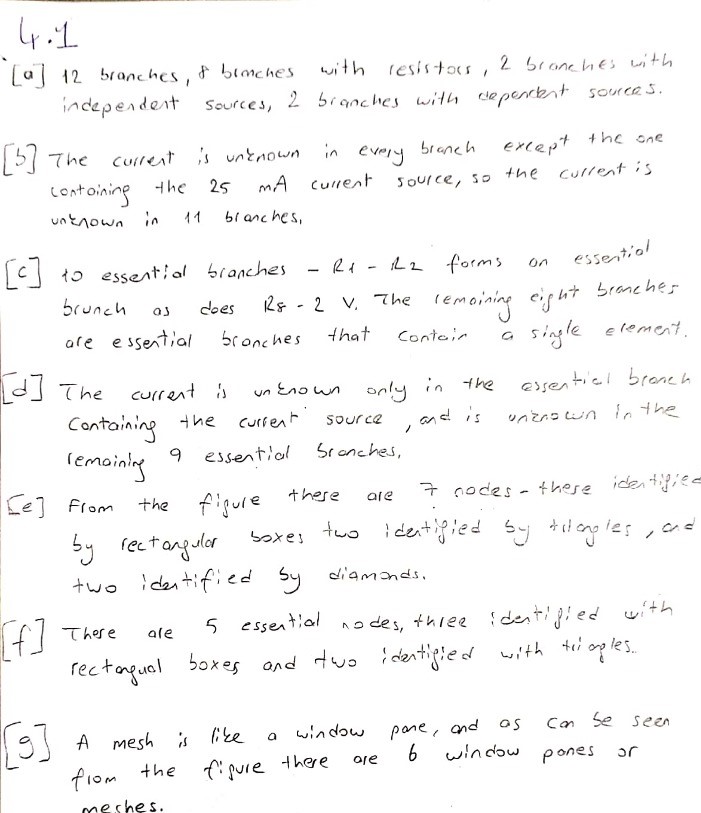 4.1
[a] 12 branches, 8 branches with resistors, 2 branches with
independent sources, 2 branches with dependent sources.
[b] The current is unknown in every branch except the one
containing the 25 mA current source, so the current is
unknown in 11 branches,
[c] 10 essential branches - R1 - R2 forms an essential
brunch as does R8 - 2 V. The remaining eight branches
are essential branches that contain a single element.
[d] The current is unknown only in the essential branch
Containing the current source, and is unknown in the
remaining 9 essential branches,
[e] From the figure there are 7 nodes - these identified
by rectangular boxes two identified by triangles, and
two identified by diamonds.
[f] There are 5 essential nodes, three identified with
rectangual boxes and two identified with triangles.
[g] A mesh is like a window pane, and as can be seen
from the figure there are 6 window panes or
meshes.